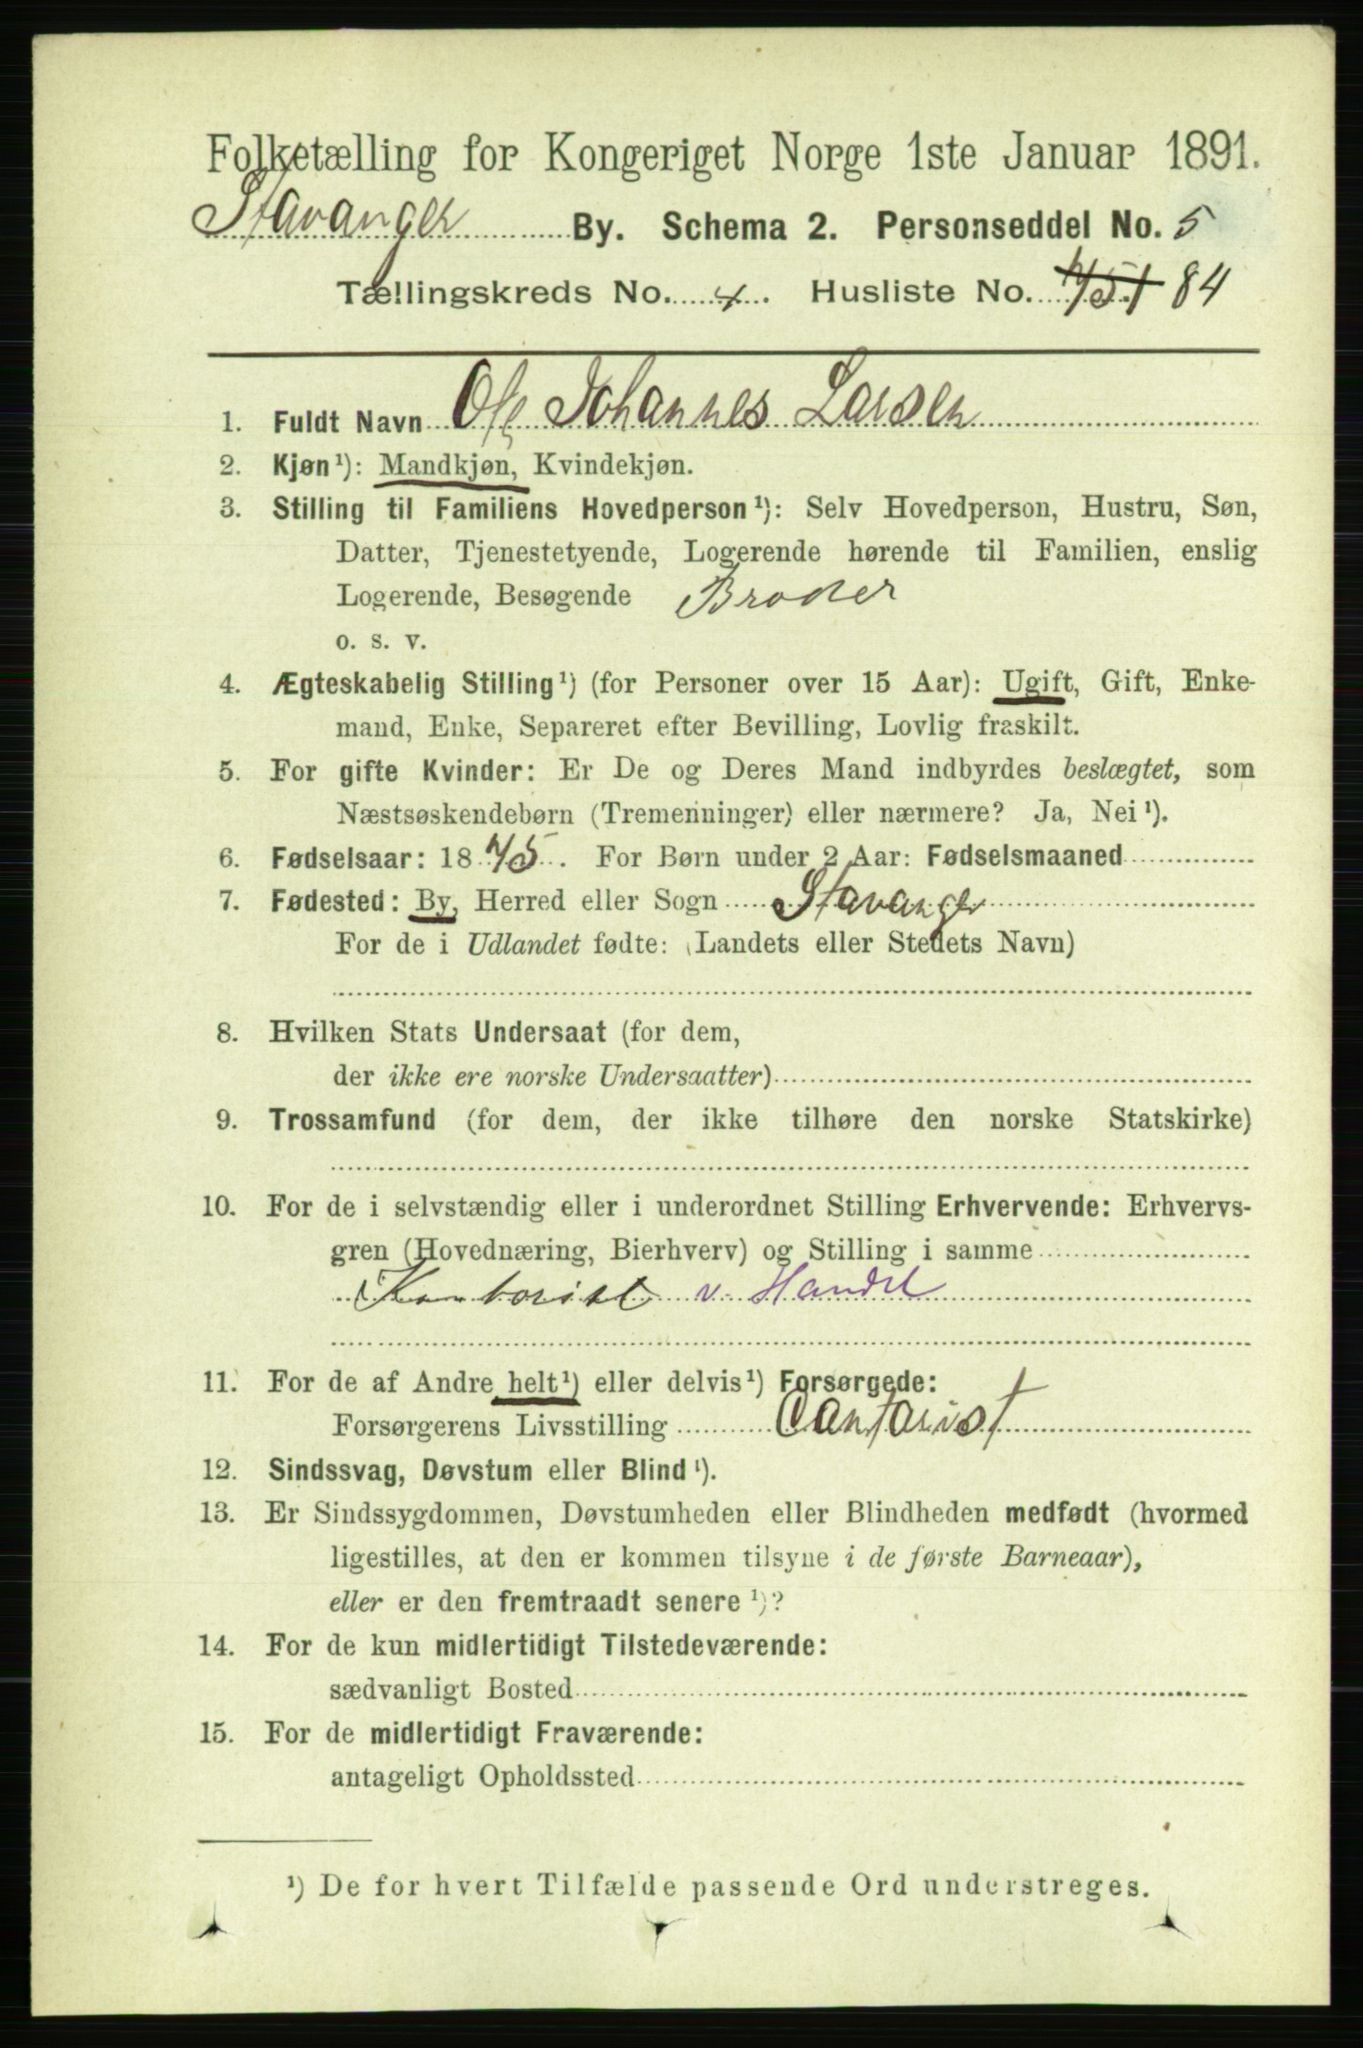 Folketælling for Kongeriget Norge 1ste Januar 1891.
Stavanger By. Schema 2. Personseddel No. 5
Tællingskreds No. 4. Husliste No. 84
1. Fuldt Navn Ole Johannes Larsen
2. Kjøn¹): Mandkjøn, Kvindekjøn.
3. Stilling til Familiens Hovedperson¹): Selv Hovedperson, Hustru, Søn,
Datter, Tjenestetyende, Logerende hørende til Familien, enslig
Logerende, Besøgende Broder
o. s. v.
4. Ægteskabelig Stilling¹) (for Personer over 15 Aar): Ugift, Gift, Enke-
mand, Enke, Separeret efter Bevilling, Lovlig fraskilt.
5. For gifte Kvinder: Er De og Deres Mand indbyrdes beslægtet, som
Næstsøskendebørn (Tremenninger) eller nærmere? Ja, Nei¹).
6. Fødselsaar: 1875. For Børn under 2 Aar: Fødselsmaaned
7. Fødested: By, Herred eller Sogn Stavanger
For de i Udlandet fødte: (Landets eller Stedets Navn)
8. Hvilken Stats Undersaat (for dem,
der ikke ere norske Undersaatter)
9. Trossamfund (for dem, der ikke tilhøre den norske Statskirke)
10. For de i selvstændig eller i underordnet Stilling Erhvervende: Erhvervs-
gren (Hovednæring, Bierhverv) og Stilling i samme
Kontorist v. Handel
11. For de af Andre helt¹) eller delvis¹) Forsørgede:
Forsørgerens Livsstilling Contorist
12. Sindssvag, Døvstum eller Blind¹).
13. Er Sindssygdommen, Døvstumheden eller Blindheden medfødt (hvormed
ligestilles, at den er kommen tilsyne i de første Barneaar),
eller er den fremtraadt senere¹)?
14. For de kun midlertidigt Tilstedeværende:
sædvanligt Bosted
15. For de midlertidigt Fraværende:
antageligt Opholdssted
¹) De for hvert Tilfælde passende Ord understreges.